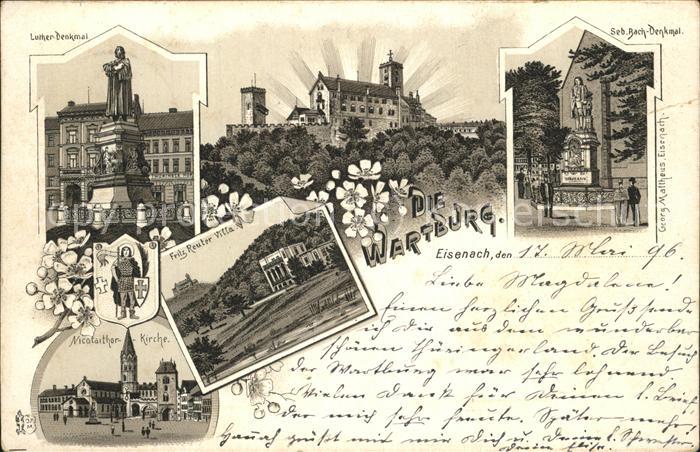 Luther-Denkmal
Seb. Bach-Denkmal.
Georg Mattheus, Eisenach.
DIE
WARTBURG.
Fritz Reuter Villa
Nicolaithor-Kirche.
Eisenach, den 17. Mai 96.
Liebe Magdalene!
Einen herzlichen Gruss sende
ich Dir aus dem wunderbar
schönen Thüringerland. Der Besuch
der Wartburg war sehr lohnend
Vielen Dank für Deinen l. Brief
der mich sehr freute. Später mehr
grüsst mit mir Dich u. Deine l. Schwester
Deine